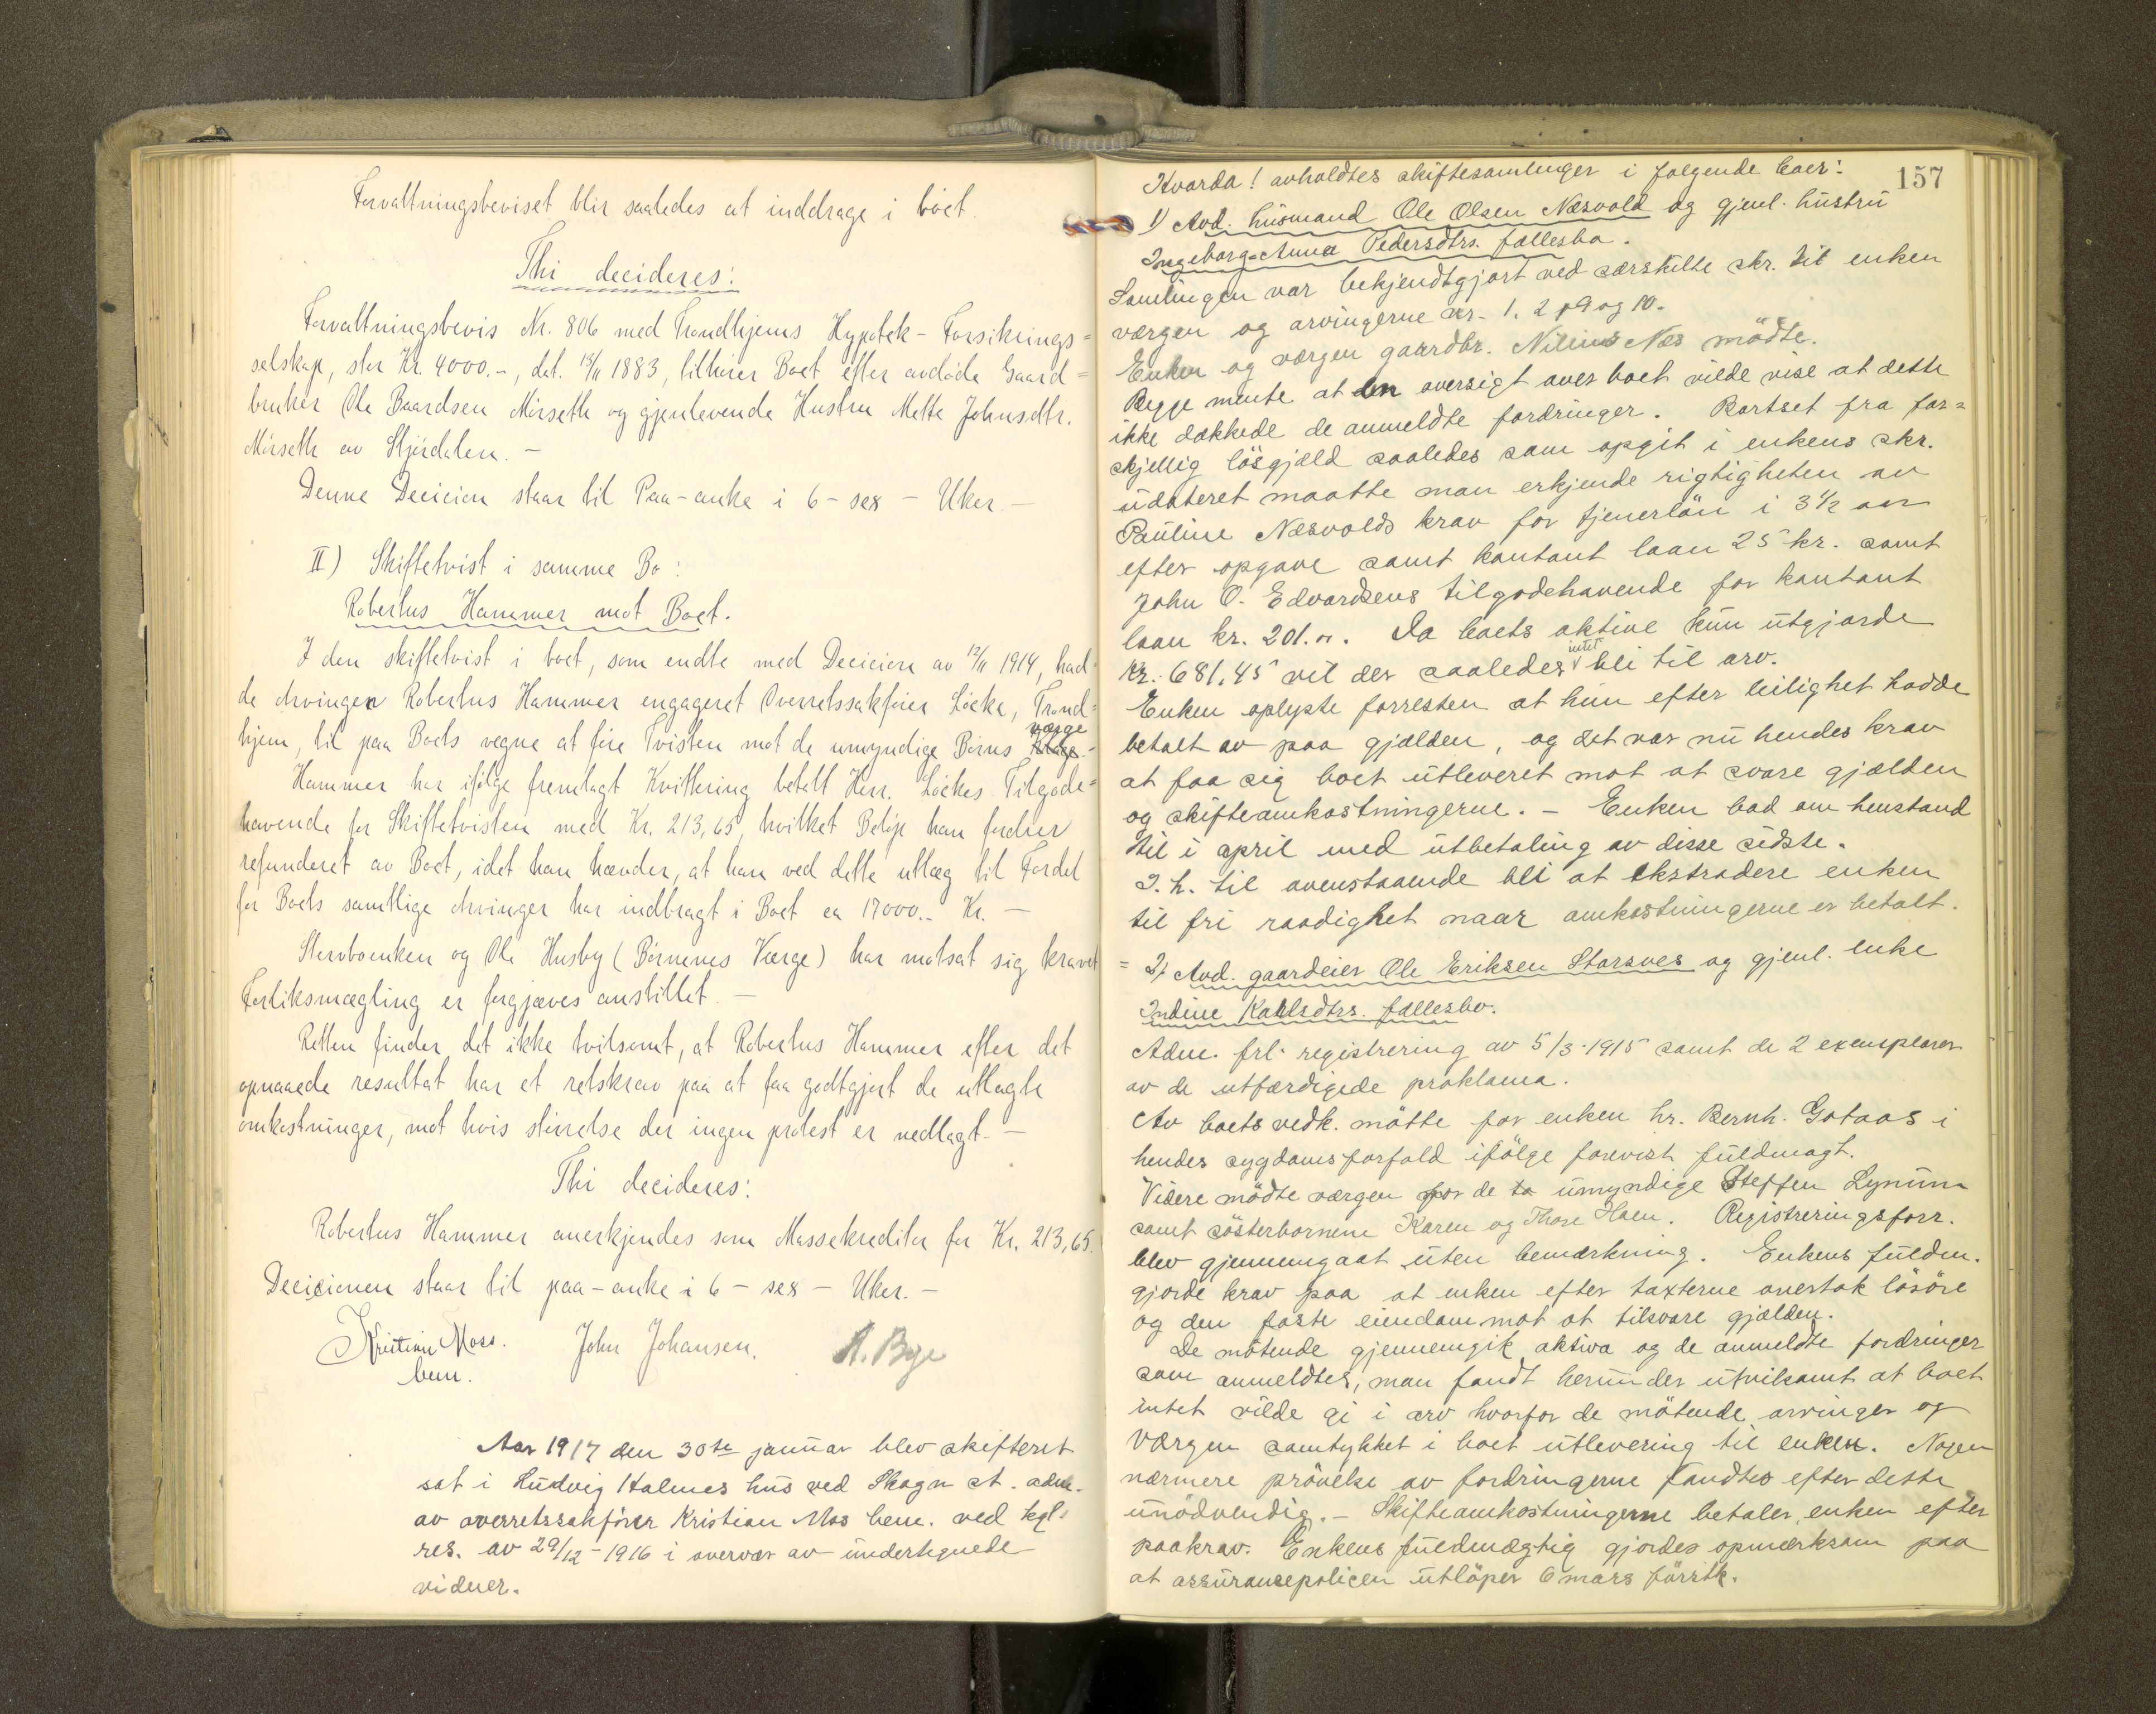 Forvaltningsbeviset blir saaledes at inddrage i boet.
Thi decideres:
Forvaltningsbevis Nr. 806 med Trondhjems Hypotek- Forsikrings=
selskap, stor Kr. 4000.-, dat. 13/11 1883, tilhører Boet efter avdøde Gaard=
bruker Ole Baardsen Mørseth og gjenlevende Hustru Mette Johnsdtr.
Mørseth av Stjørdalen. -
Denne Decicion staar til Paa-anke i 6 - sex - Uker. -
II) Skiftetvist i samme Bo:
Robertus Hammer mot Boet.
I den skiftetvist i boet, som endte med Decicion av 12/11 1914, had=
de Arvingen Robertus Hammer engageret Overretssakfører Løcke, Trond=
hjem, til paa Boets vegne at føre Tvisten mot de umyndige Børns værge
Hammer har ifølge fremlagt Kvittering betalt Herr. Løckes Tilgode=
havende for Skiftetvisten med Kr. 213,65, hvilket Beløp han fordrer
refunderet av Boet, idet han hævder, at han ved dette utlæg til Fordel
for Boets samtlige Arvinger har indbragt i Boet ca 17000.- Kr. -
Stervboenken og Ole Husby (Børnenes Værge) har motsat sig kravet
Forliksmægling er forgjæves anstillet. -
Retten finder det ikke tvilsomt, at Robertus Hammer efter det
opnaaede resultat har et retskrav paa at faa godtgjort de utlagte
omkostninger, mot hvis størrelse der ingen protest er nedlagt. -
Thi decideres:
Robertus Hammer anerkjendes som Massekreditor for Kr. 213,65.
Decicionen staar til paa-anke i 6 - sex - Uker. -
Kristian Moss. John Johansen. A. Bye
bem.
Aar 1917 den 30te januar blev skifteret
sat i Ludvig Holmes hus ved Skogn st. adm.
av overretssakfører Kristian Mos bem. ved kgl.
res. av 29/12 - 1916 i overvær av undertegnede
vidner.
157
Hvorda! avholdtes skiftesamlinger i følgende boer:
1) Avd. husmand Ole Olsen Næsvold og gjenl. hustru
Ingeborg-Anna Pedersdtrs. fællesbo.
Samlingen var bekjendtgjort ved særskilte skr. til enken
værgen og arvingerne nr. 1. 2 9 og 10.
Enken og værgen gaardbr. Nilius Næs mödte.
Begge mente at en oversigt over boet vilde vise at dette
ikke dækkede de anmeldte fordringer. Bortset fra for=
skjellig lösgjæld saaledes som opgit i enkens skr.
udateret maatte man erkjende rigtigheten av
Pauline Næsvolds krav for tjenerlön i 3½ aar
efter opgave samt kontant laan 25 kr. samt
John O. Edvardsens tilgodehavende for kontant
laan kr. 201.00. Da boets aktive kun utgjorde
kr. 681.45 vil der saaledes intet bli til arv.
Enken oplyste forresten at hun efter leilighet hadde
betalt av paa gjælden, og det var nu hendes krav
at faa sig boet utleveret mot at svare gjælden
og skifteomkostningerne. - Enken bad om henstand
til i april med utbetaling av disse sidste.
I. h. til ovenstaaende bli at ekstradere enken
til fri raadighet naar omkostningerne er betalt.
= 2) Avd. gaardeier Ole Eriksen Storsves og gjenl. enke
Indine Karlsdtrs. fællesbo.
Adm. frl. registrering av 5/3-1915 samt de 2 exemplarer
av de utfærdigede proklama.
Av boets vedk. mötte for enken hr. Bernh. Gotaas i
hendes sygdomsforfald ifölge forevist fuldmagt.
Videre mödte værgen for de to umyndige Steffen Lynum
samt sösterbornene Karen og Thore Hoen. Registreringsforr.
blev gjennemgaat uten bemærkning. Enkens fuldm.
gjorde krav paa at enken efter taxterne overtok lösöre
og den faste eiendom mot at tilsvare gjælden.
De mötende gjennemgik aktiva og de anmeldte fordringer
som anmeldtes, man fandt herunder utvilsomt at boet
intet vilde gi i arv hvorfor de mötende arvinger og
værgen samtykket i boet utlevering til enken. Nogen
nærmere prövelse av fordringerne fandtes efter dette
unödvendig. - Skifteomkostningerne betaler enken efter
paakrav. Enkens fuldmægtig gjordes opmerksom paa
at assurancepolicen utlöper 6 mars förstk.